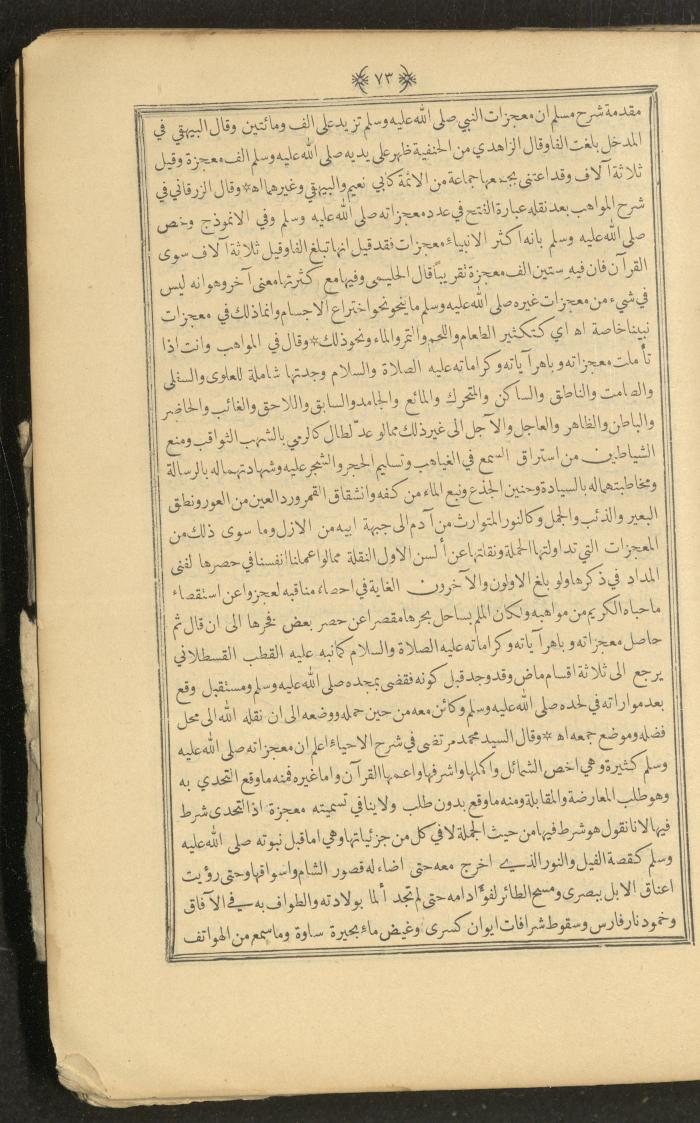 ﴿ ٧٣ ﴾
مقدمة شرح مسلم ان معجزات النبي صلى الله عليه وسلم تزيد على الف ومائتين وقال البيهقي في
المدخل بلغت الفا وقال الزاهدي من الحنفية ظهر على يديه صلى الله عليه وسلم الف معجزة وقيل
ثلاثة آلاف وقد اعتنى بجمعها جماعة من الائمة كابي نعيم والبيهقي وغيرهما اه * وقال الزرقاني في
شرح المواهب بعد نقله عبارة الفتح في عدد معجزاته صلى الله عليه وسلم وفي الانموذج وخص
صلى الله عليه وسلم بانه اكثر الانبياء معجزات فقد قيل انها تبلغ الفا وقيل ثلاثة آلاف سوى
القرآن فان فيه ستين الف معجزة نقريباً قال الحليمي وفيها مع كثرتها معنى آخر وهو انه ليس
في شيء من معجزات غيره صلى الله عليه وسلم ما ينحو نحو اختراع الاجسام وانما ذلك في معجزات
نبينا خاصة اه اي كتكثير الطعام واللحم والتمر والماء ونحو ذلك * وقال في المواهب وانت اذا
تأملت معجزاته وباهر آياته وكراماته عليه الصلاة والسلام وجدتها شاملة للعلوى والسفلى
والصامت والناطق والساكن والمتحرك والمائع والجامد والسابق واللاحق والغائب والحاضر
والباطن والظاهر والعاجل والآجل الى غير ذلك مما لو عدّ لطال كالرمي بالشهب الثواقب ومنع
الشياطين من استراق السمع في الغياهب وتسليم الحجر والشجر عليه وشهادتهما له بالرسالة
ومخاطبتهما له بالسيادة وحنين الجذع ونبع الماء من كفه وانشقاق القمر ورد العين من العور ونطق
البعير والذئب والجمل وكالنور المتوارث من آدم الى جبهة ابيه من الازل وما سوى ذلك من
المعجزات التي تداولتها الحملة ونقلتها عن ألسن الاول النقلة مما لو اعملنا انفسنا في حصرها لفنى
المداد في ذكرها ولو بلغ الاولون والآخرون الغاية في احصاء مناقبه لعجزوا عن استقصاء
ما حباه الكريم من مواهبه ولكان الملم بساحل بحرها مقصرا عن حصر بعض فخرها الى ان قال ثم
حاصل معجزاته وباهر آياته وكراماته عليه الصلاة والسلام كما نبه عليه القطب القسطلاني
يرجع الى ثلاثة اقسام ماض وقد وجد قبل كونه فقضى بمجده صلى الله عليه وسلم ومستقبل وقع
بعد مواراته في لحده صلى الله عليه وسلم وكائن معه من حين حمله ووضعه الى ان نقله الله الى محل
فضله وموضع جمعه اه * وقال السيد محمد مرتضى في شرح الاحياء اعلم ان معجزاته صلى الله عليه
وسلم كثيرة وهي اخص الشمائل واكملها واشرفها واعمها القرآن واما غيره فمنه ما وقع التحدي به
وهو طلب المعارضة والمقابلة ومنه ما وقع بدون طلب ولا ينافي تسميته معجزة اذ التحدى شرط
فيها لانا نقول هو شرط فيها من حيث الجملة لا في كل من جزئياتها وهي اما قبل نبوته صلى الله عليه
وسلم كقصة الفيل والنور الذي اخرج معه حتى اضاء له قصور الشام واسواقها وحتى رؤيت
اعناق الابل ببصرى ومسح الطائر لفؤاد امه حتى لم تجد ألما بولادته والطواف به في الآفاق
وخمود نار فارس وسقوط شرافات ايوان كسرى وغيض ماء بحيرة ساوة وما سمع من الهواتف